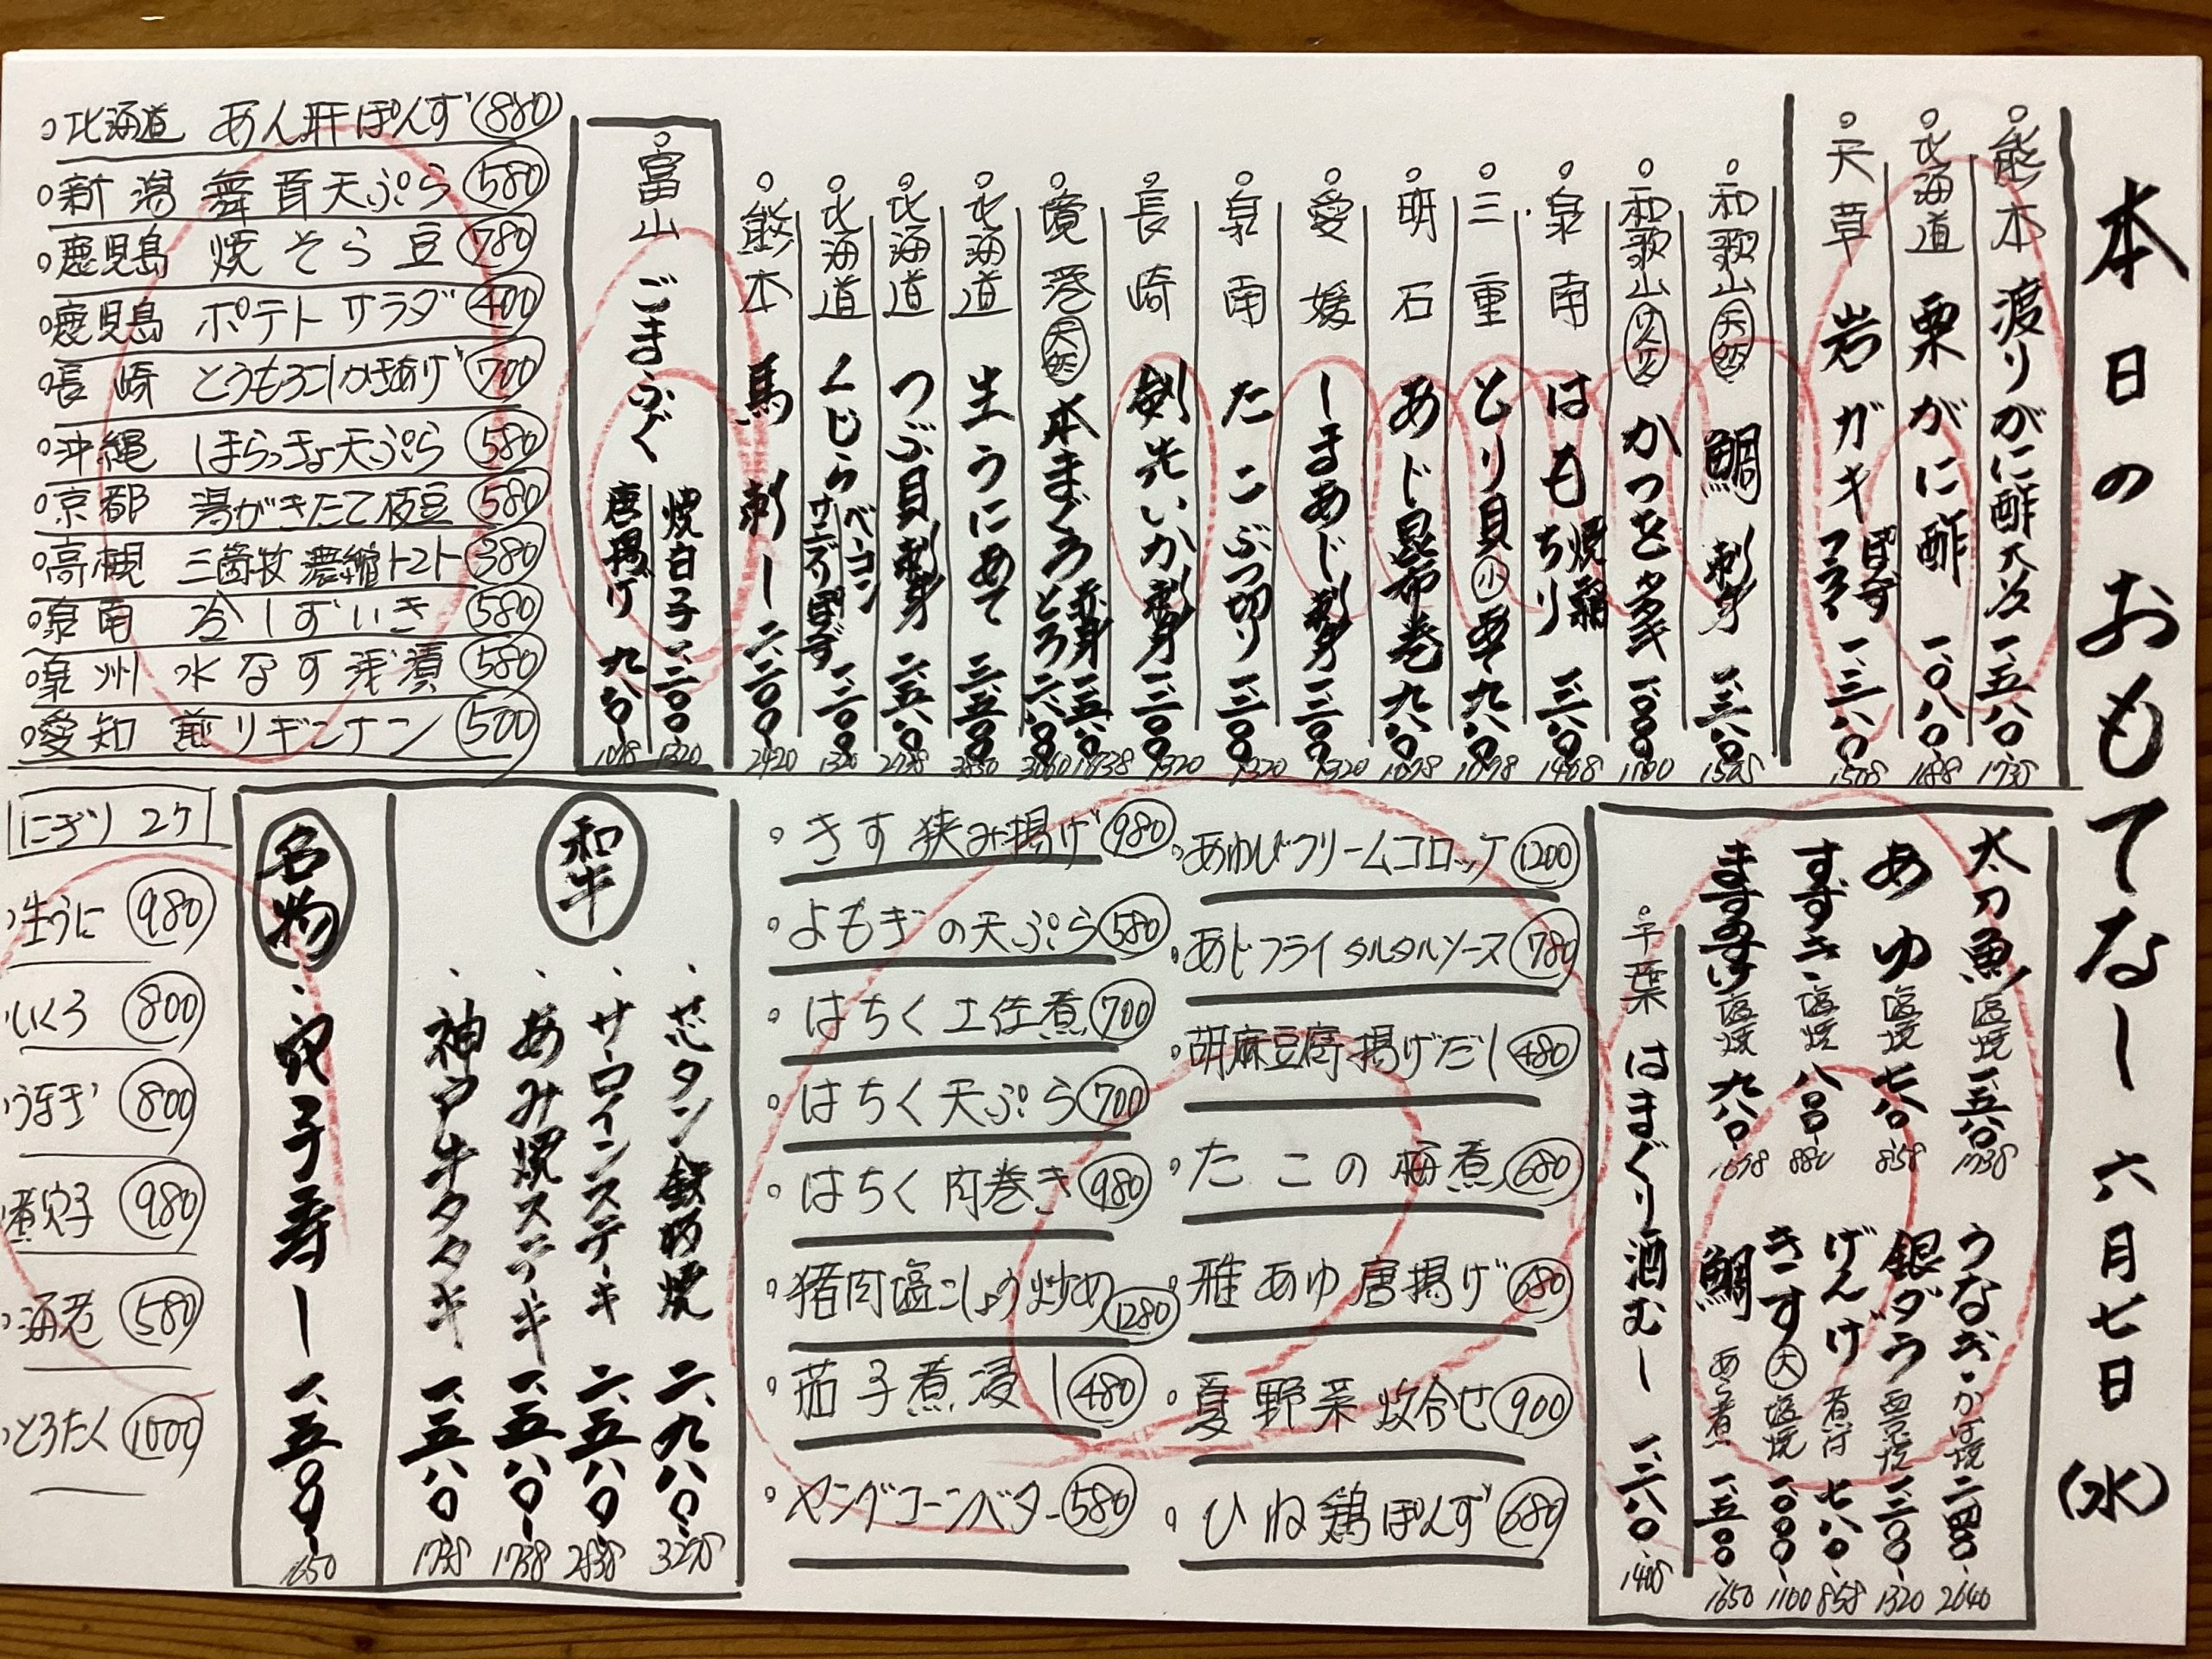 本日のおもてなし 六月七日(水)
熊本 渡りがに酢 一、五八〇 1738
北海道 栗がに酢 一、〇八〇 1188
天草 岩ガキ 一、三八〇
和歌山 天然 鯛 刺身 一、三八〇
和歌山 かつをタタキ 一、〇〇〇 1100
泉南 はも 焼霜 ちり 一、二八〇 1408
三重 とり貝 小 九八〇 1078
明石 あじ昆布巻 九八〇 1078
愛媛 しまあじ刺身 一、二〇〇 1320
泉南 たこぶつ切り 一、二〇〇 1320
長崎 剣先いか刺身 一、二〇〇 1320
境港 天然 本まぐろ 赤身 一、五八〇 1738 とろ 二、八〇〇
北海道 生うにあて 三、五〇〇 3850
北海道 つぶ貝刺身 二、五八〇
北海道 くじら ベーコン サエズリぽんず 一、二〇〇 1320
熊本 馬刺し 二、二〇〇 2420
富山 ごまふぐ 焼白子 一、二〇〇 1320 唐揚げ 九八〇 1078
北海道 あん肝ぽんず 880
新潟 舞茸天ぷら 580
鹿児島 焼そら豆 780
鹿児島 ポテトサラダ 400
長崎 とうもろこしかきあげ 700
沖縄 島らっきょ天ぷら 580
京都 湯がきたて枝豆 580
高槻 三箇牧濃縮トマト 380
泉南 冷しずいき 580
泉州 水なす浅漬 580
愛知 煎りギンナン 500
太刀魚 塩焼 一、五八〇 1738
あゆ 塩焼 七八〇 858
すずき 塩焼 八〇〇 880
ますのすけ 塩焼 九八〇 1078
うなぎ かば焼 二、四〇〇 2640
銀ダラ 西京焼 一、二〇〇 1320
げんげ 煮付 七八〇 858
きす 大 塩焼 一、〇〇〇 1100
鯛 あら煮 一、五〇〇 1650
千葉 はまぐり酒むし 一、二八〇 1408
あゆびクリームコロッケ 1200
あじフライタルタルソース 780
胡麻豆腐揚げだし 480
たこの梅煮 680
稚あゆ唐揚げ 680
夏野菜炊合せ 900
ひね鶏ぽんず 680
きす挟み揚げ 980
よもぎの天ぷら 580
はちく土佐煮 700
はちく天ぷら 700
はちく肉巻き 980
猪肉塩こしょう炒め 1280
茄子煮浸し 480
ヤングコーンバター 580
和牛
芯タン鉄板焼 二、九八〇 3278
サーロインステーキ 二、五八〇 2838
あみ焼ステーキ 一、五八〇 1738
神戸牛タタキ 一、五八〇 1738
名物
穴子寿し 一、五〇〇 1650
にぎり 2ケ
生うに 980
いくら 800
うなぎ 800
煮穴子 980
海老 580
とろたく 1000